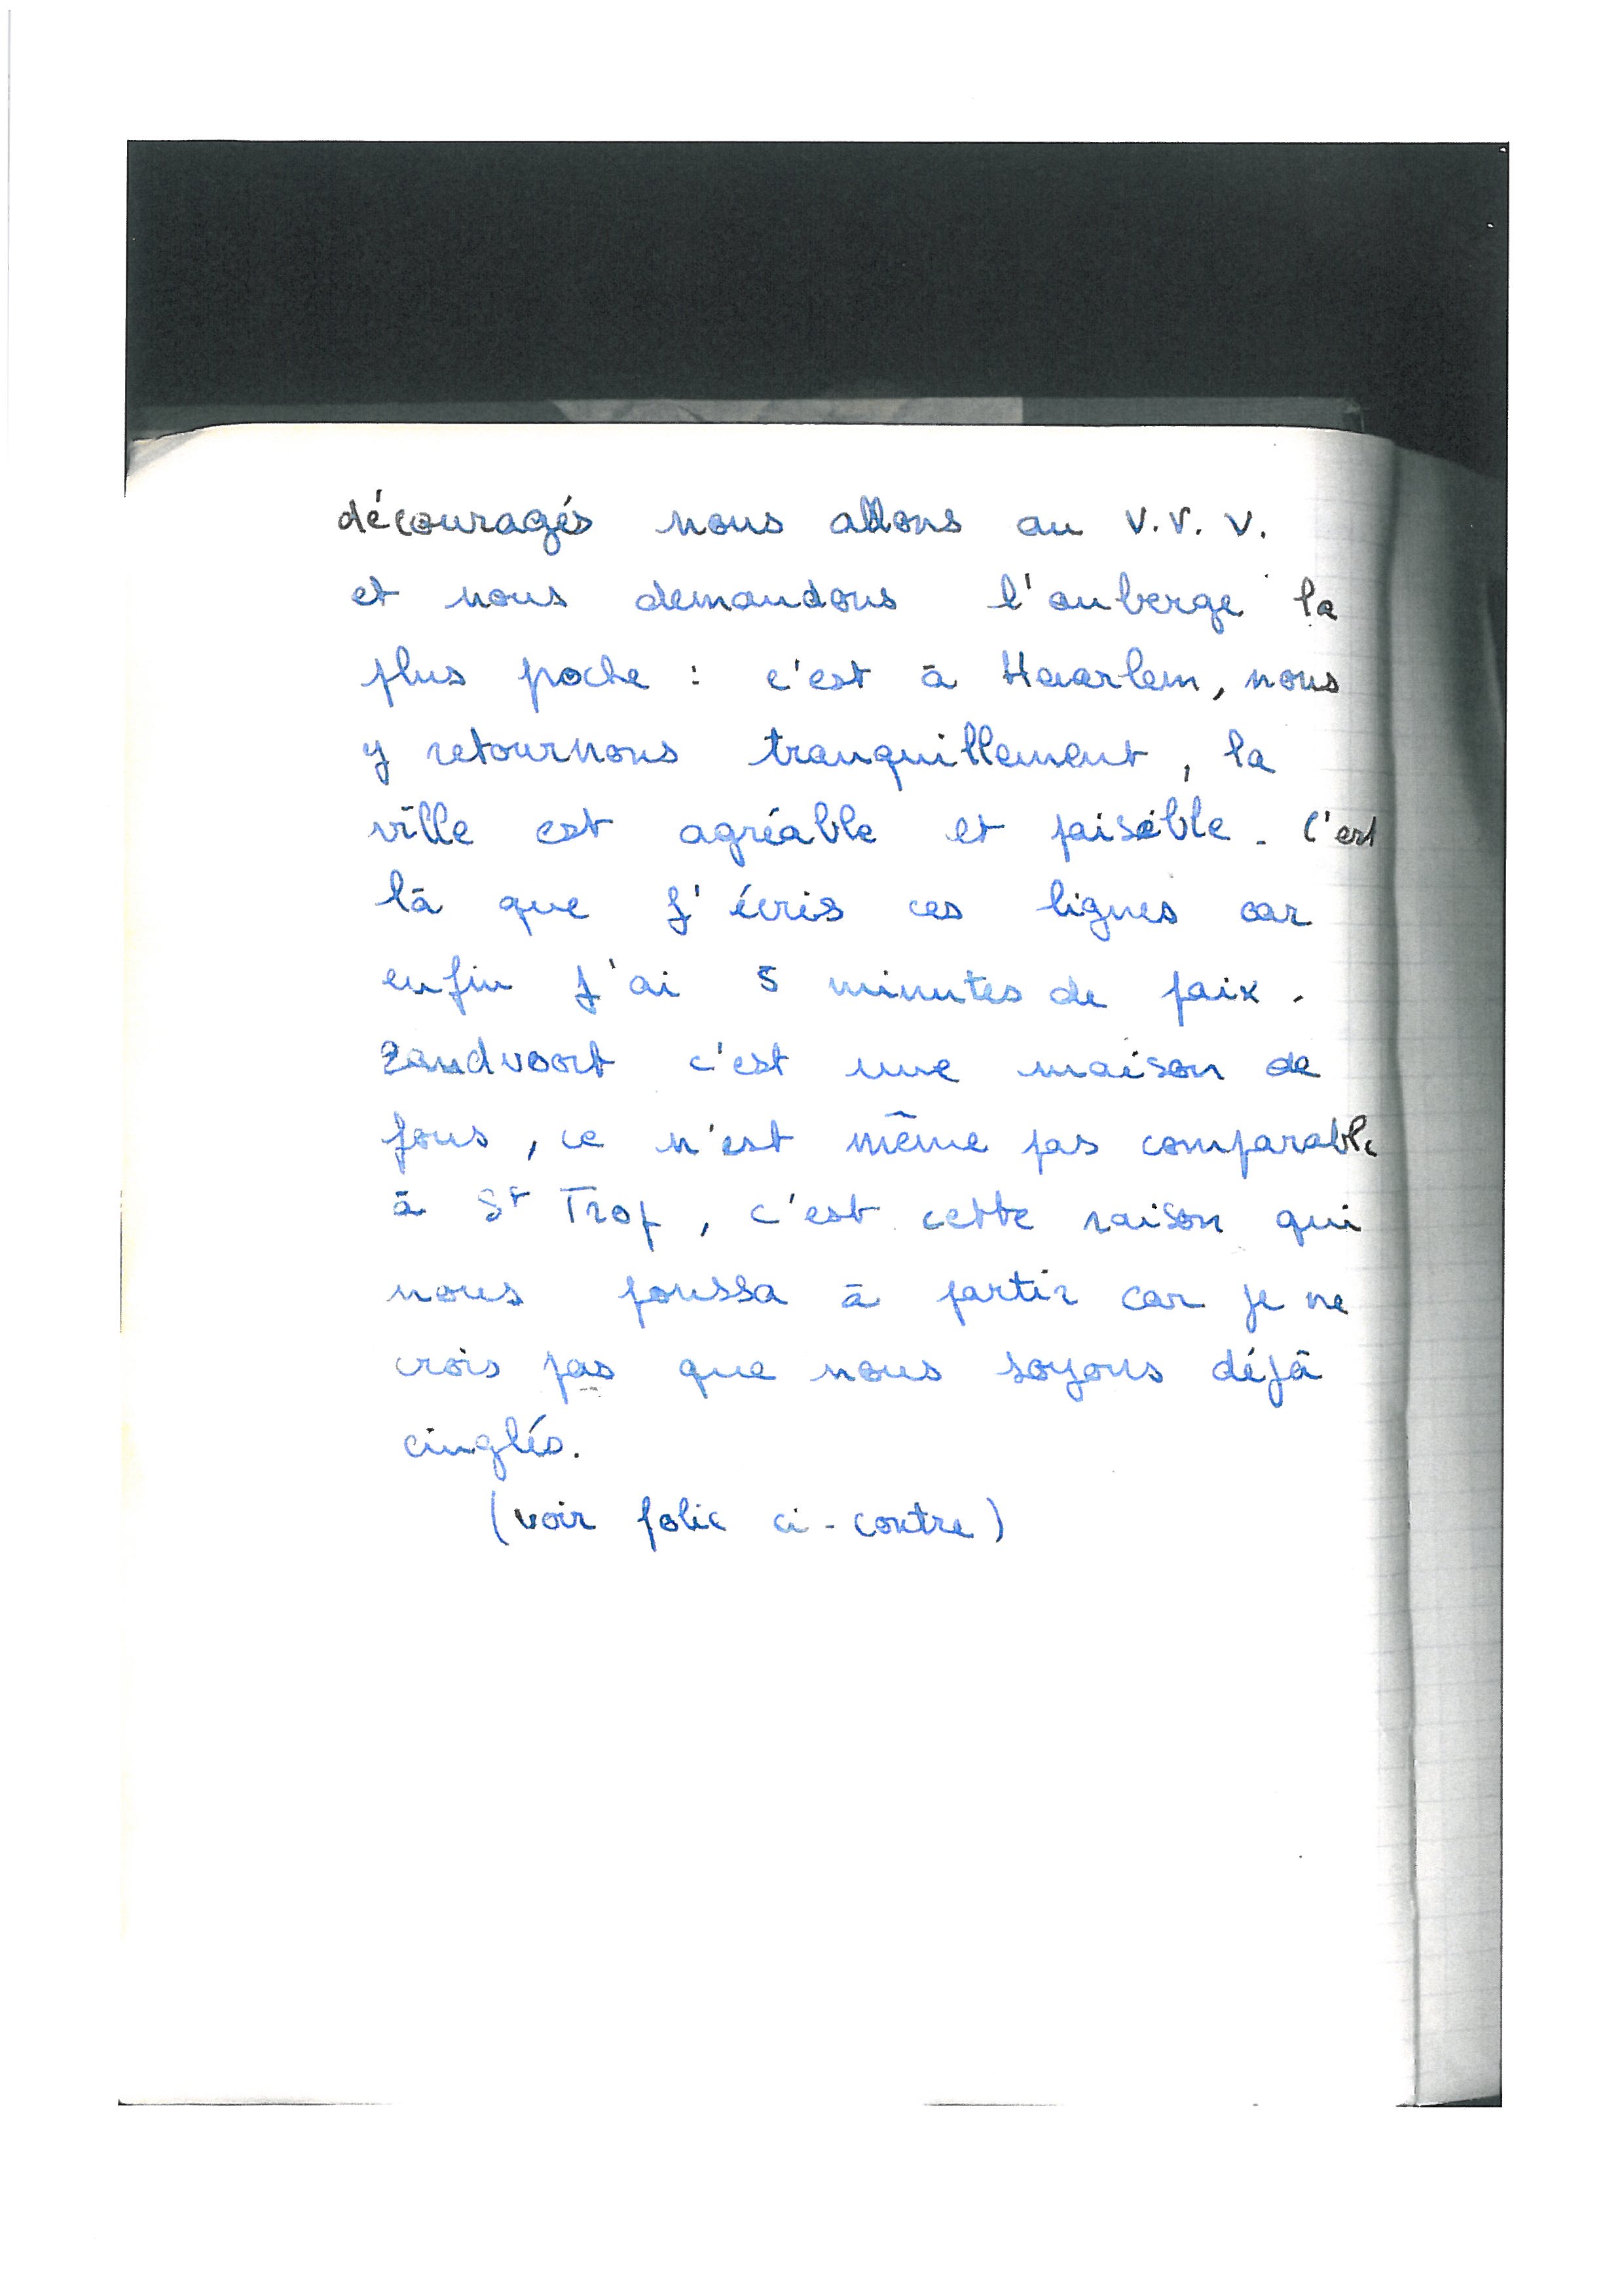 découragés nous allons au V.V.V.
et nous demandons l'auberge la
plus poche : c'est à Haarlem, nous
y retournons tranquillement, la
ville est agréable et paisible. C'est
là que j'écris ces lignes car
enfin j'ai 5 minutes de paix.
Zandvoort c'est une maison de
fous, ce n'est même pas comparable
à St Trop, c'est cette raison qui
nous poussa à partir car je ne
crois pas que nous soyons déjà
cinglés.
(voir folie ci-contre)